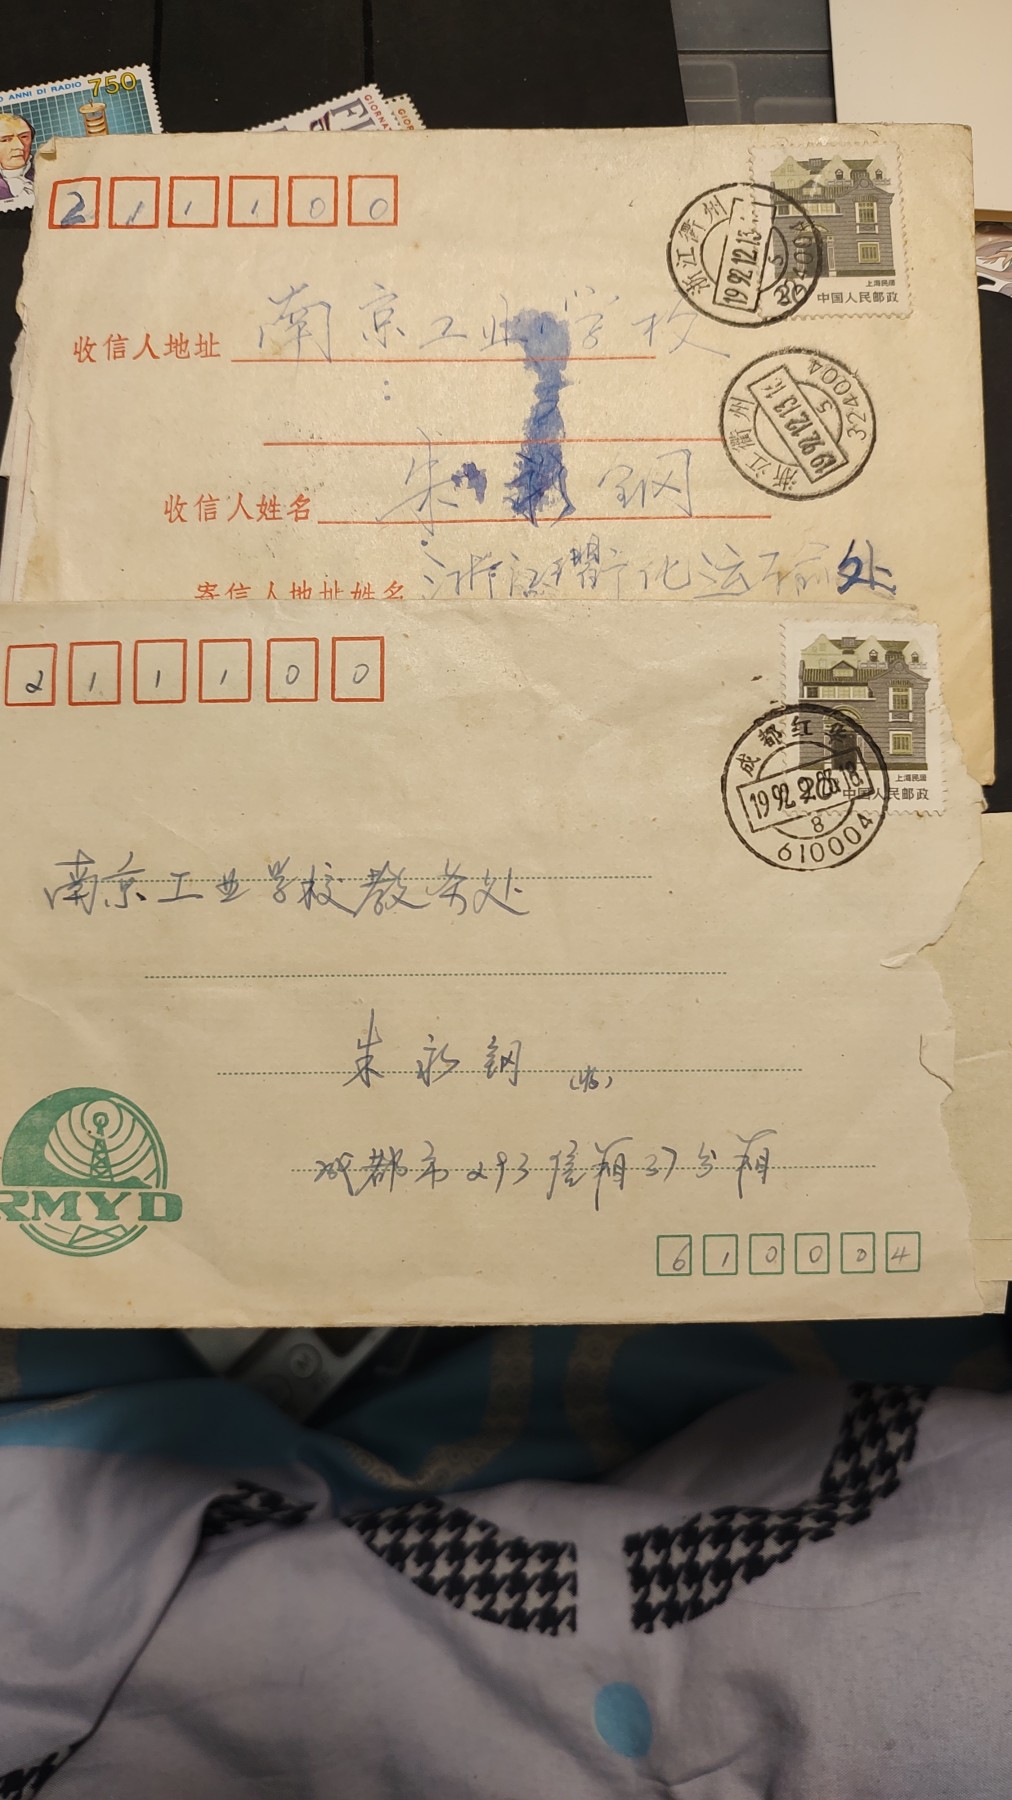 ANNI DI RADIO 750
GIORNA
211100
浙江衢州
1992.12.13
5
324004
上海民居
中国人民邮政
收信人地址 南京工业学校
浙江衢州
1992.12.13.
5
324004
收信人姓名 朱永钢
寄信人地址姓名 浙江衢化运输处
211100
成都红
1992
8
610004
上海民居
中国人民邮政
南京工业学校教务处
朱永钢(收)
成都市293信箱37分箱
RMYD
610004